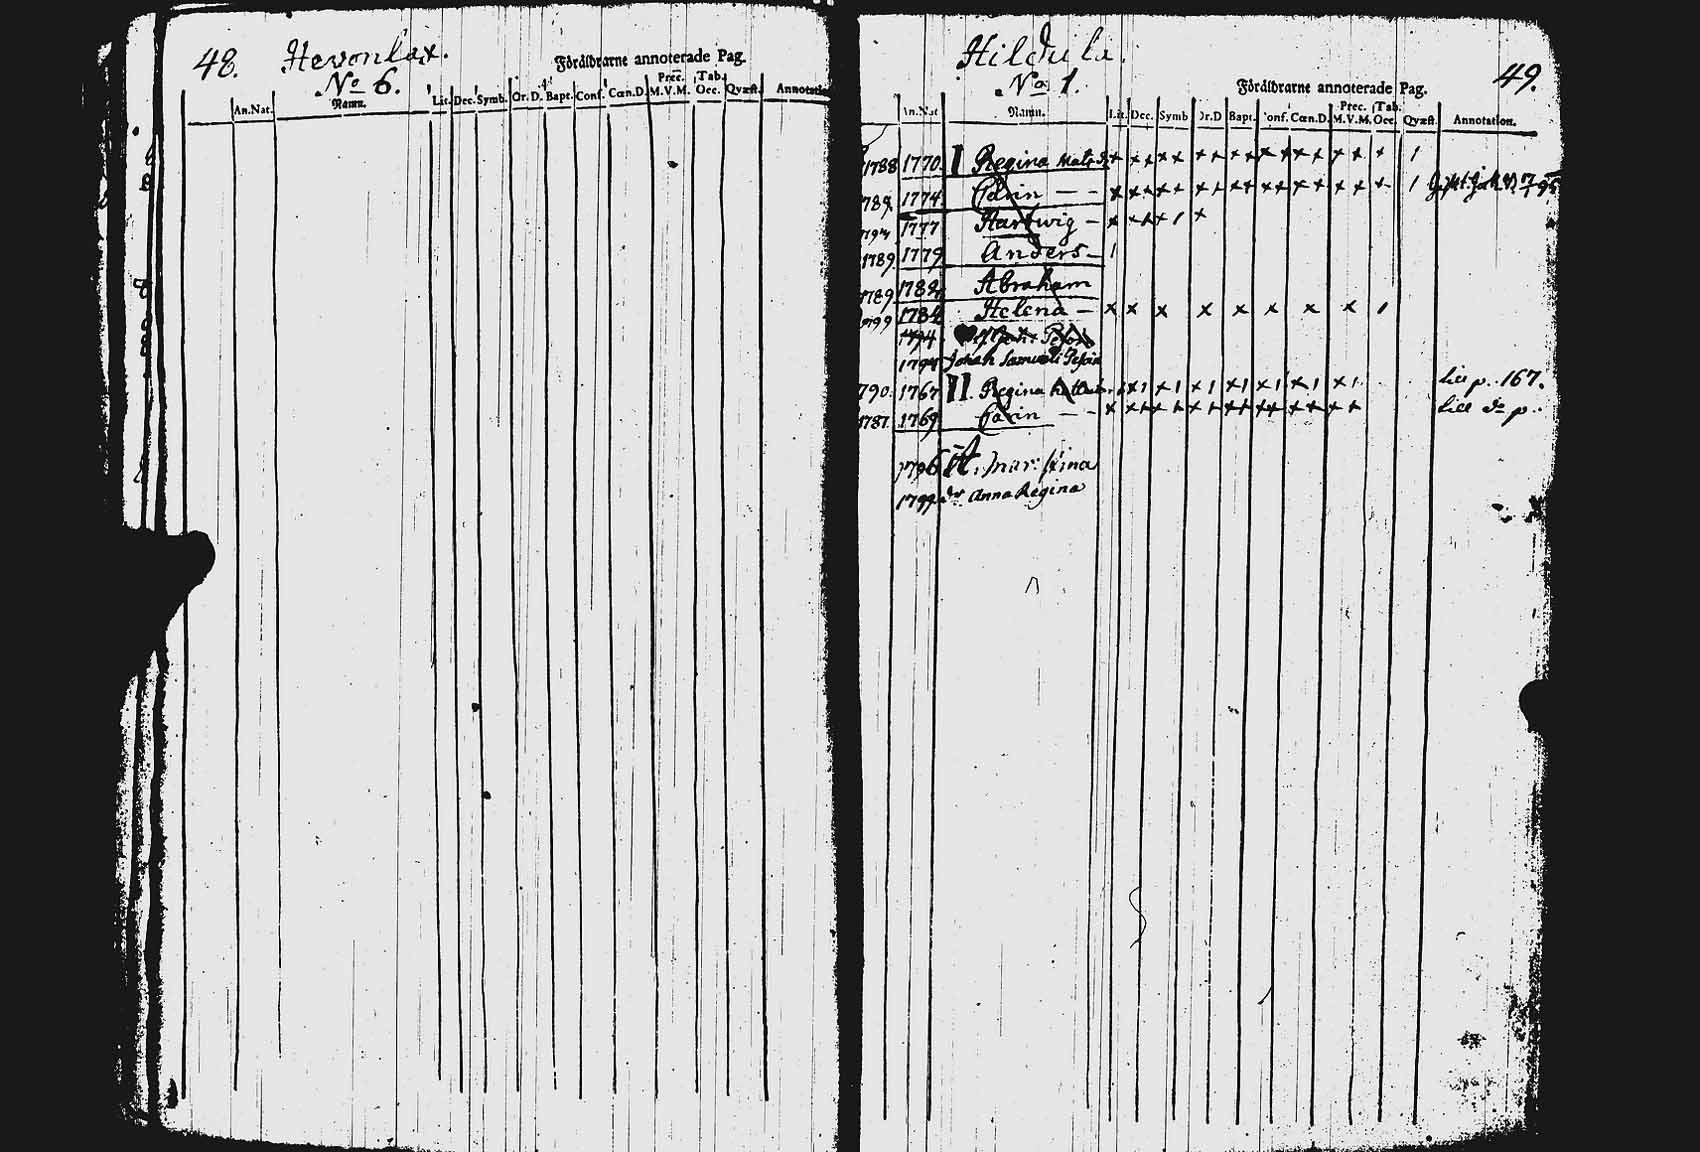 48. Hevonlax.
No 6.
Föräldrarne annoterade Pag.
An.Nat. Namn. Lit. Dec. Symb. Or.D. Bapt. Conf. Cœn.D. Prec. M.V.M. Tab. Oec. Qvæst. Annotatio
Hildula.
No 1.
49.
Föräldrarne annoterade Pag.
An.Nat Namn. Lit. Dec. Symb Or.D Bapt. Conf. Cœn.D. Prec. M.V.M. Tab. Oec. Qvæst. Annotation.
1788 1770. I Regina Mats d. x xx xx xx xx xx xx xx x 1
1774. Carin — — x xx xx xx xx xx xx xx x 1
1777 Hartwig — x xx x 1 x
1789. 1779 Anders — 1
1789 Abraham
1799 1784 Helena — x x x x x x x x 1
1794
1794 Johan Samuel
1790. 1767 II. Regina x1 x1 x1 x1 x1 x1 x1 till p. 167.
1787. 1769. Carin — — x xx xx xx xx xx xx xx till do p.
1796 Mar: Stina
1799 do Anna Regina